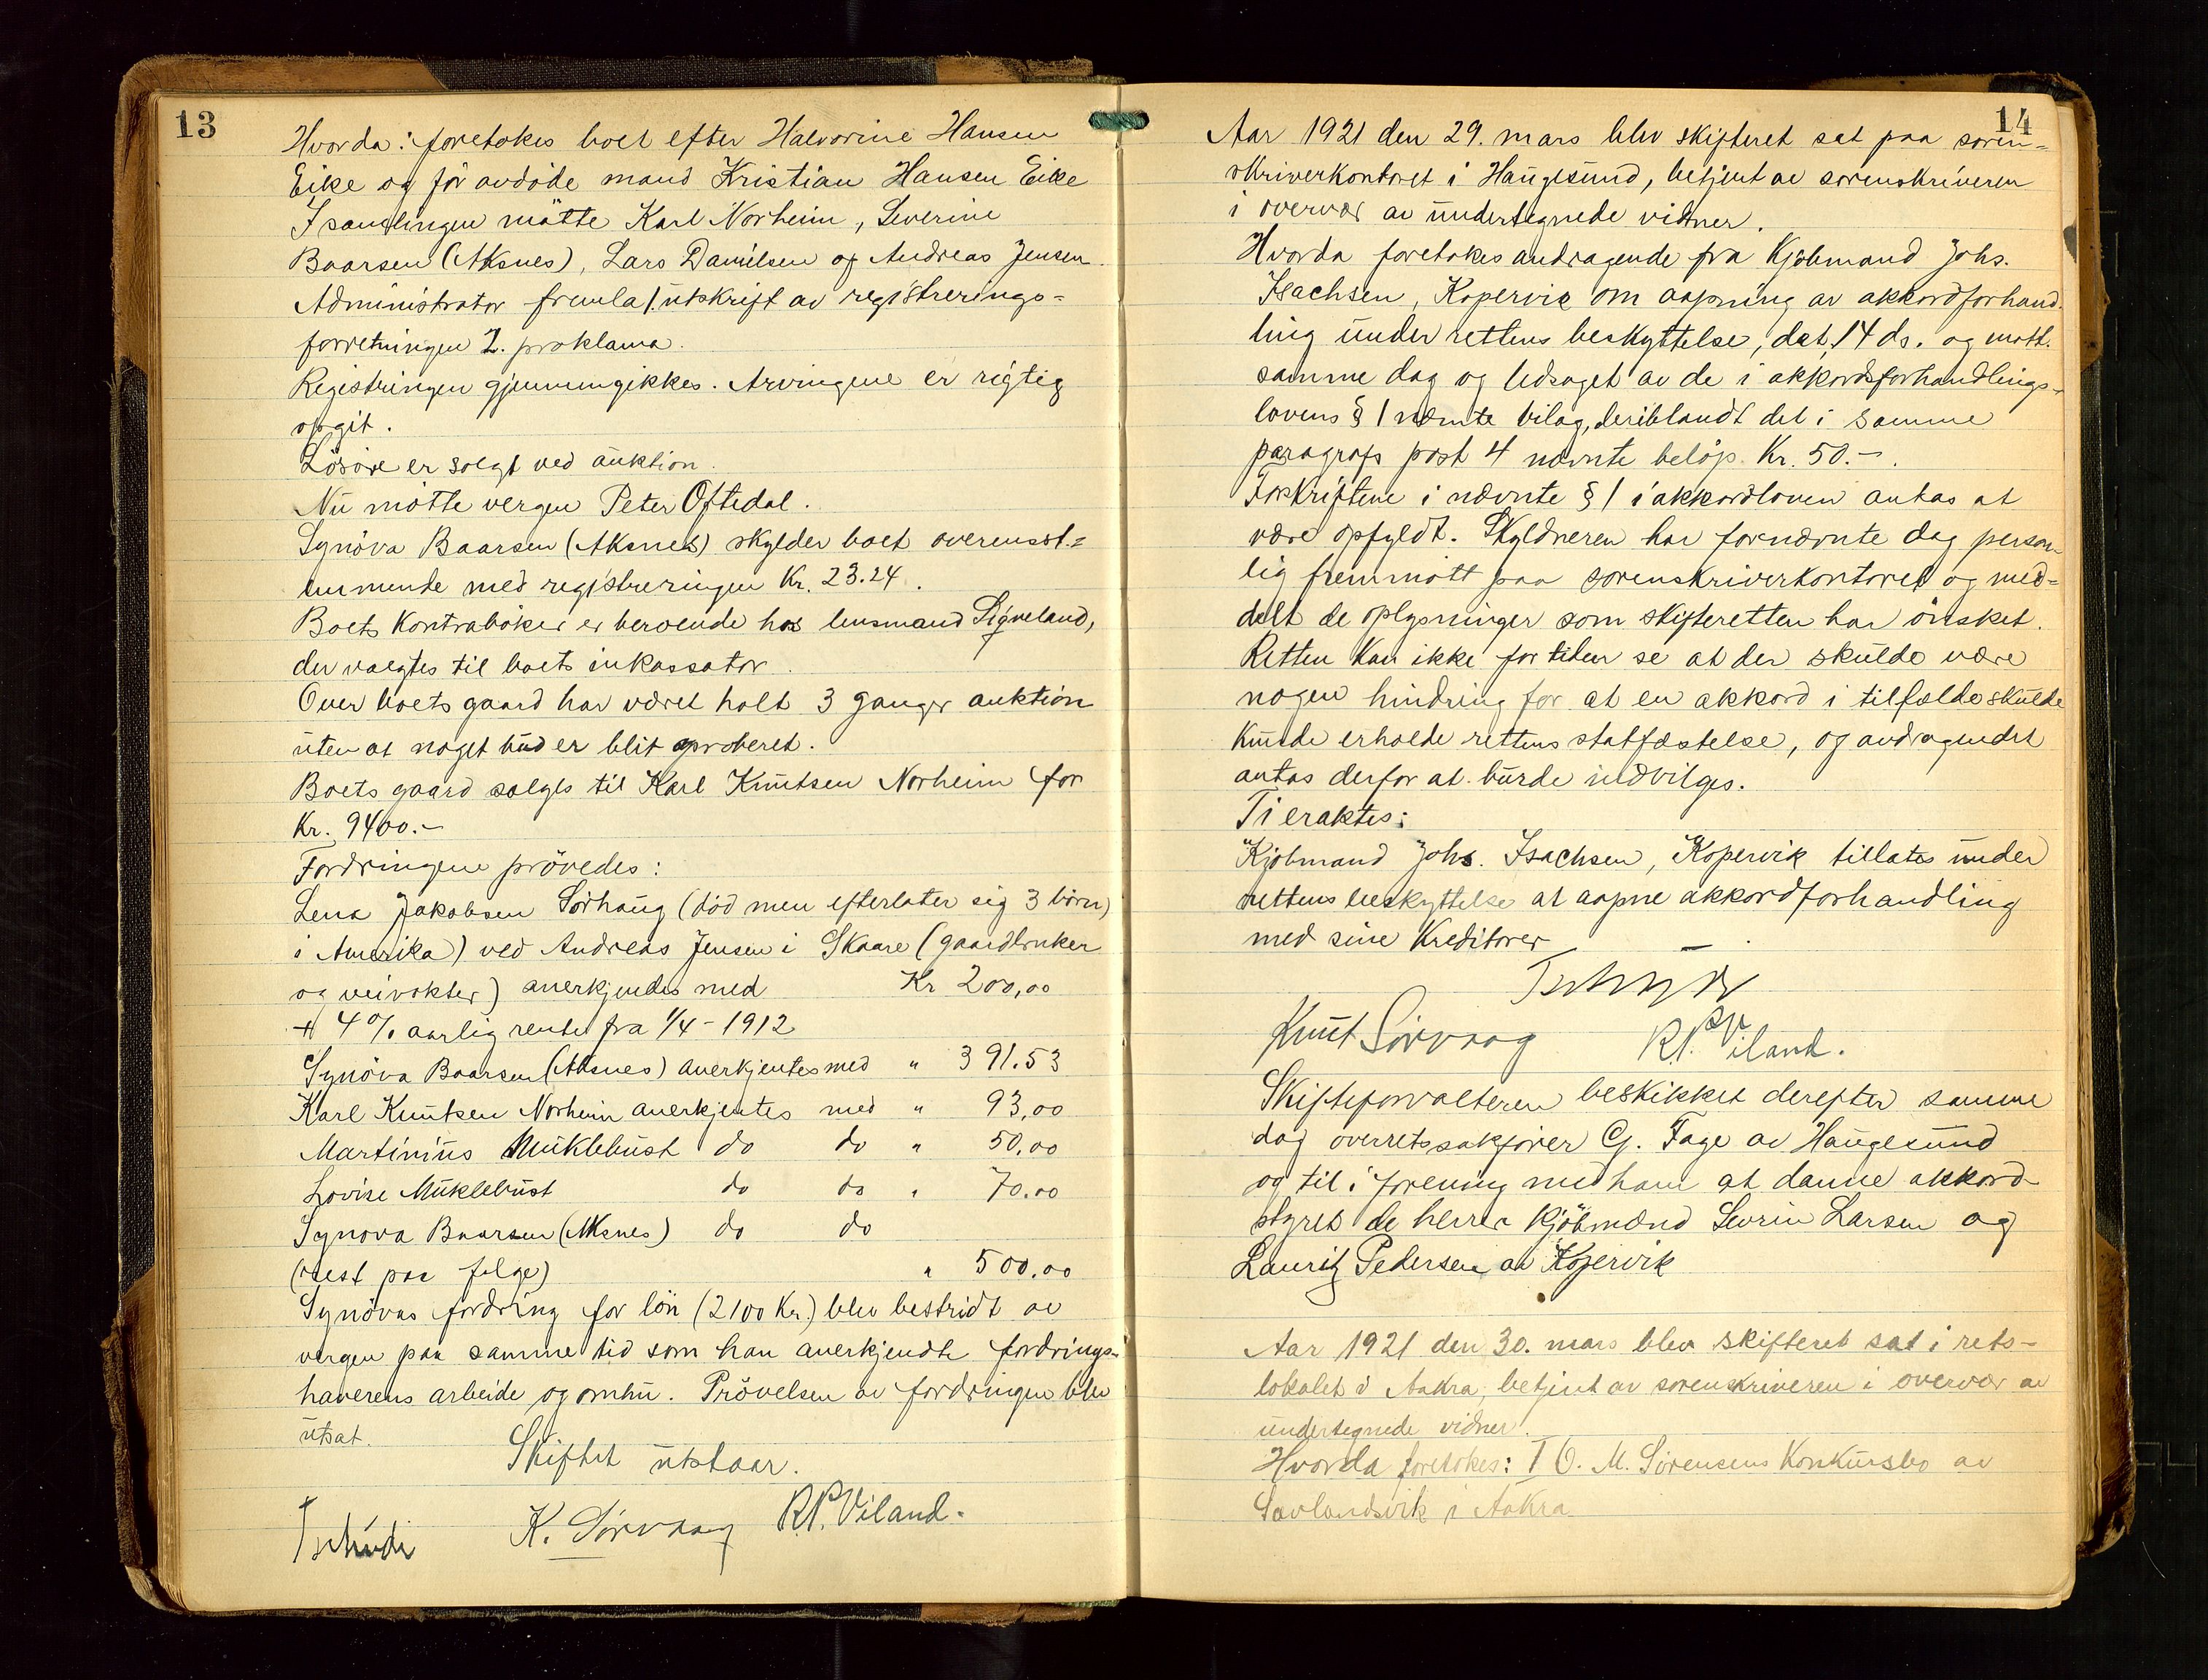 13
Hvorda: foretokes boet efter Halvorine Hansen
Eike og för avdöde mand Kristian Hansen Eike
I samlingen mötte Karl Norheim, Severine
Baarsen (Aksnes), Lars Danielsen og Andreas Jensen.
Administrator fremla 1. utskrift av registrerings=
forretningen 2. proklama.
Registringen gjennemgikkes. Arvingene er rigtig
opgit.
Lösöre er solgt ved auktion.
Nu mötte vergen Peter Oftedal.
Synöva Baarsen (Aksnes) skylder boet overensst.=
emmende med registreringen Kr. 23.24.
Boets Kontraböker er beroende hos lensmand Ligneland,
der valgtes til boets inkassator.
Over boets gaard har været holt 3 ganger auktion
uten at noget bud er blit aproberet.
Boets gaard solgts til Karl Knutsen Norheim for
Kr. 9400.-
Fordringene prövedes:
Lena Jakobsen Sörhaug (död men efterlater sig 3 börn
i Amerika) ved Andreas Jensen i Skaare (gaardbruker
og veivokter) anerkjendes med Kr 200,00
+ 4% aarlig rente fra 1/4-1912
Synöva Baarsen (Aksnes) anerkjentes med " 391.53
Karl Knutsen Norheim anerkjentes med " 93,00
Martinius Mūklebust do do " 50,00
Lovise Mūklebust do do " 70.00
Synova Baarsen (Aksnes) do do
(rest paa følge) " 500.00
Synövas fordring for lön (2100 Kr.) blev bestridt av
vergen paa samme tid som han anerkjendte fordrings-
haverens arbeide og omhu. Prövelsen av fordringen blev
utsat.
Skiftet utstaar.
Tschudi K. Sörvaag R.P. Viland.
14
Aar 1921 den 29. mars blev skifteret sat paa soren=
skriverkontoret i Haugesund, betjent av sorenskriveren
i overvær av undertegnede vidner.
Hvorda foretokes andragende fra Kjöbmand Johs.
Isachsen, Kopervik om aapning av akkordforhand
ling under rettens beskyttelse, dat. 14 ds. og mott.
samme dag og ledsaget av de i akkordsforhandlings-
lovens § 1 nævnte bilag, deriblandt det i samme
paragrafs post 4 nævnte belöp Kr. 50.-.
Forskriftene i nævnte § 1 i akkordloven antas at
være opfyldt. Skyldneren har fornævnte dag person-
lig fremmött paa sorenskriverkontoret og med=
delt de oplysninger som skifteretten har önsket.
Retten kan ikke for tiden se at der skulde være
nogen hindring for at en akkord i tilfælde skulde
kunde erholde rettens stadfæstelse, og andragendet
antas derfor at burde indvilges.
Ti eraktes:
Kjöbmand Johs. Isachsen, Kopervik tillates under
rettens beskyttelse at aapne akkordforhandling
med sine Kreditorer
Tschudi
Knut Sörvaag R.P. Viland.
Skifteforvalteren beskikket derefter samme
dag overretssakförer G. Fage av Haugesund
og til i forening med ham at danne akkord-
styret de herrer Kjöbmænd Sevrin Larsen og
Lauritz Pedersen av Kopervik
Aar 1921 den 30. mars blev skifteret sat i rets-
lokalet i Aakra, betjent av sorenskriveren i overvær av
undertegnede vidner.
Hvorda foretokes: I O. M. Sörensens Konkursbo av
Sævlandsvik i Aakra